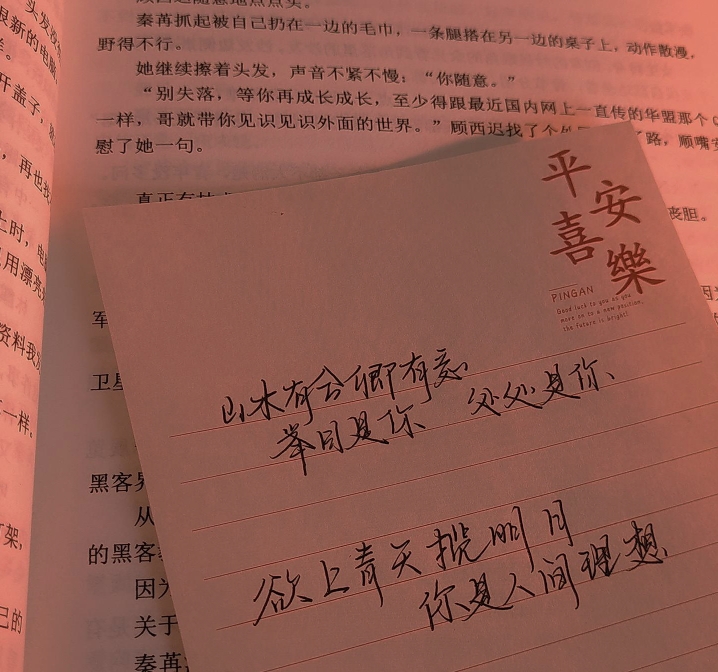 头发
秦苒抓起被自己扔在一边的毛巾，一条腿搭在另一边的桌子上，动作散漫，
野得不行。
她继续擦着头发，声音不紧不慢：“你随意。”
“别失落，等你再成长成长，至少得跟最近国内网上一直传的华盟那个
一样，哥就带你见识见识外面的世界。”顾西迟找了个 路，顺嘴安
慰了她一句。
真正有
丧胆。
军
卫星
黑客界
从
的黑客
因为
关于
秦苒
很新的电脑
样。
开盖子，
，再也找
上时，电
用漂亮
资料我
一样。
打架，
己的
平安
喜樂
PINGAN
Good luck to you as you
move on to a new position,
the future is bright!
山水有合卿有意
举目是你、处处是你、
欲上青天揽明月
你是人间理想